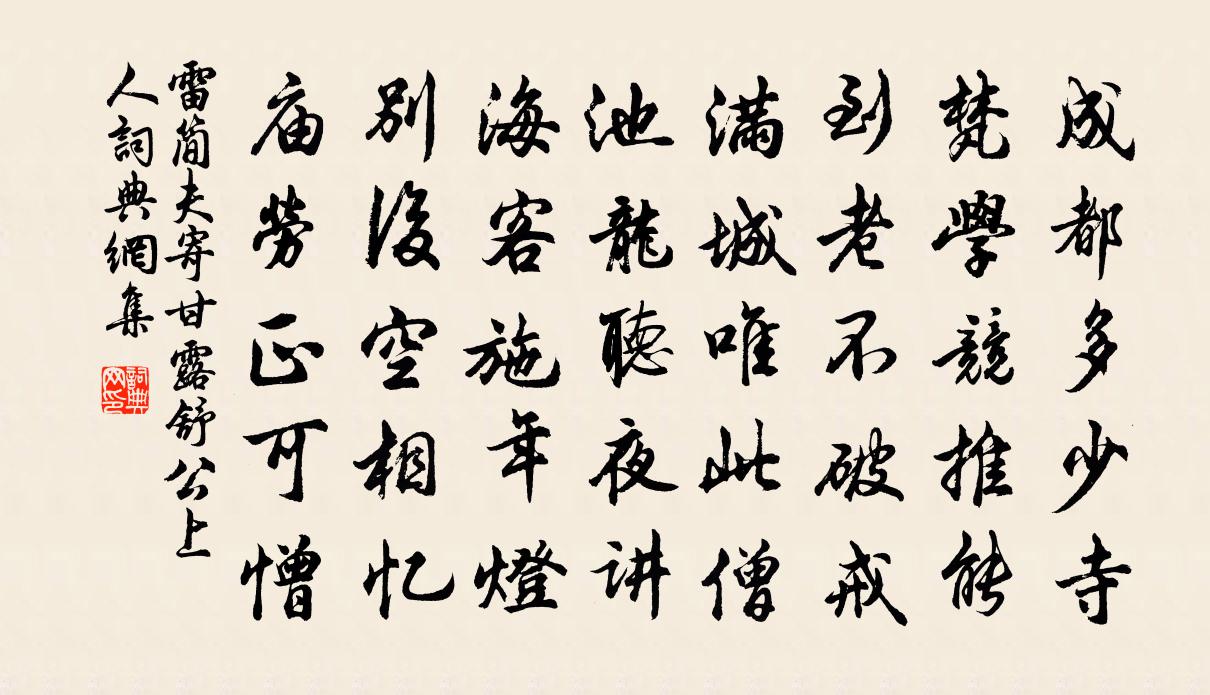 成都多少寺
梵學競推能
到老不破戒
滿城唯此僧
池龍聽夜讲
海客施年燈
别後空相忆
庙勞正可憎
雷简夫寄甘露舒公上
人詞典網集
詞典
网印